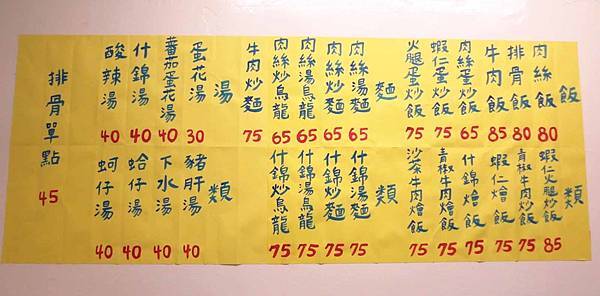 飯類
肉絲飯 80
排骨飯 80
牛肉飯 85
肉絲蛋炒飯 65
蝦仁蛋炒飯 75
火腿蛋炒飯 75
蝦仁火腿炒飯 85
青椒牛肉炒飯 75
蝦仁燴飯 75
什錦燴飯 75
青椒牛肉燴飯 75
沙茶牛肉燴飯 75
麵類
肉絲湯麵 65
肉絲炒麵 65
肉絲湯烏龍 65
肉絲炒烏龍 65
牛肉炒麵 75
什錦湯麵 75
什錦炒麵 75
什錦湯烏龍 75
什錦炒烏龍 75
湯類
蛋花湯 30
蕃茄蛋花湯 40
什錦湯 40
酸辣湯 40
豬肝湯 40
下水湯 40
蛤仔湯 40
蚵仔湯 40
排骨單點 45